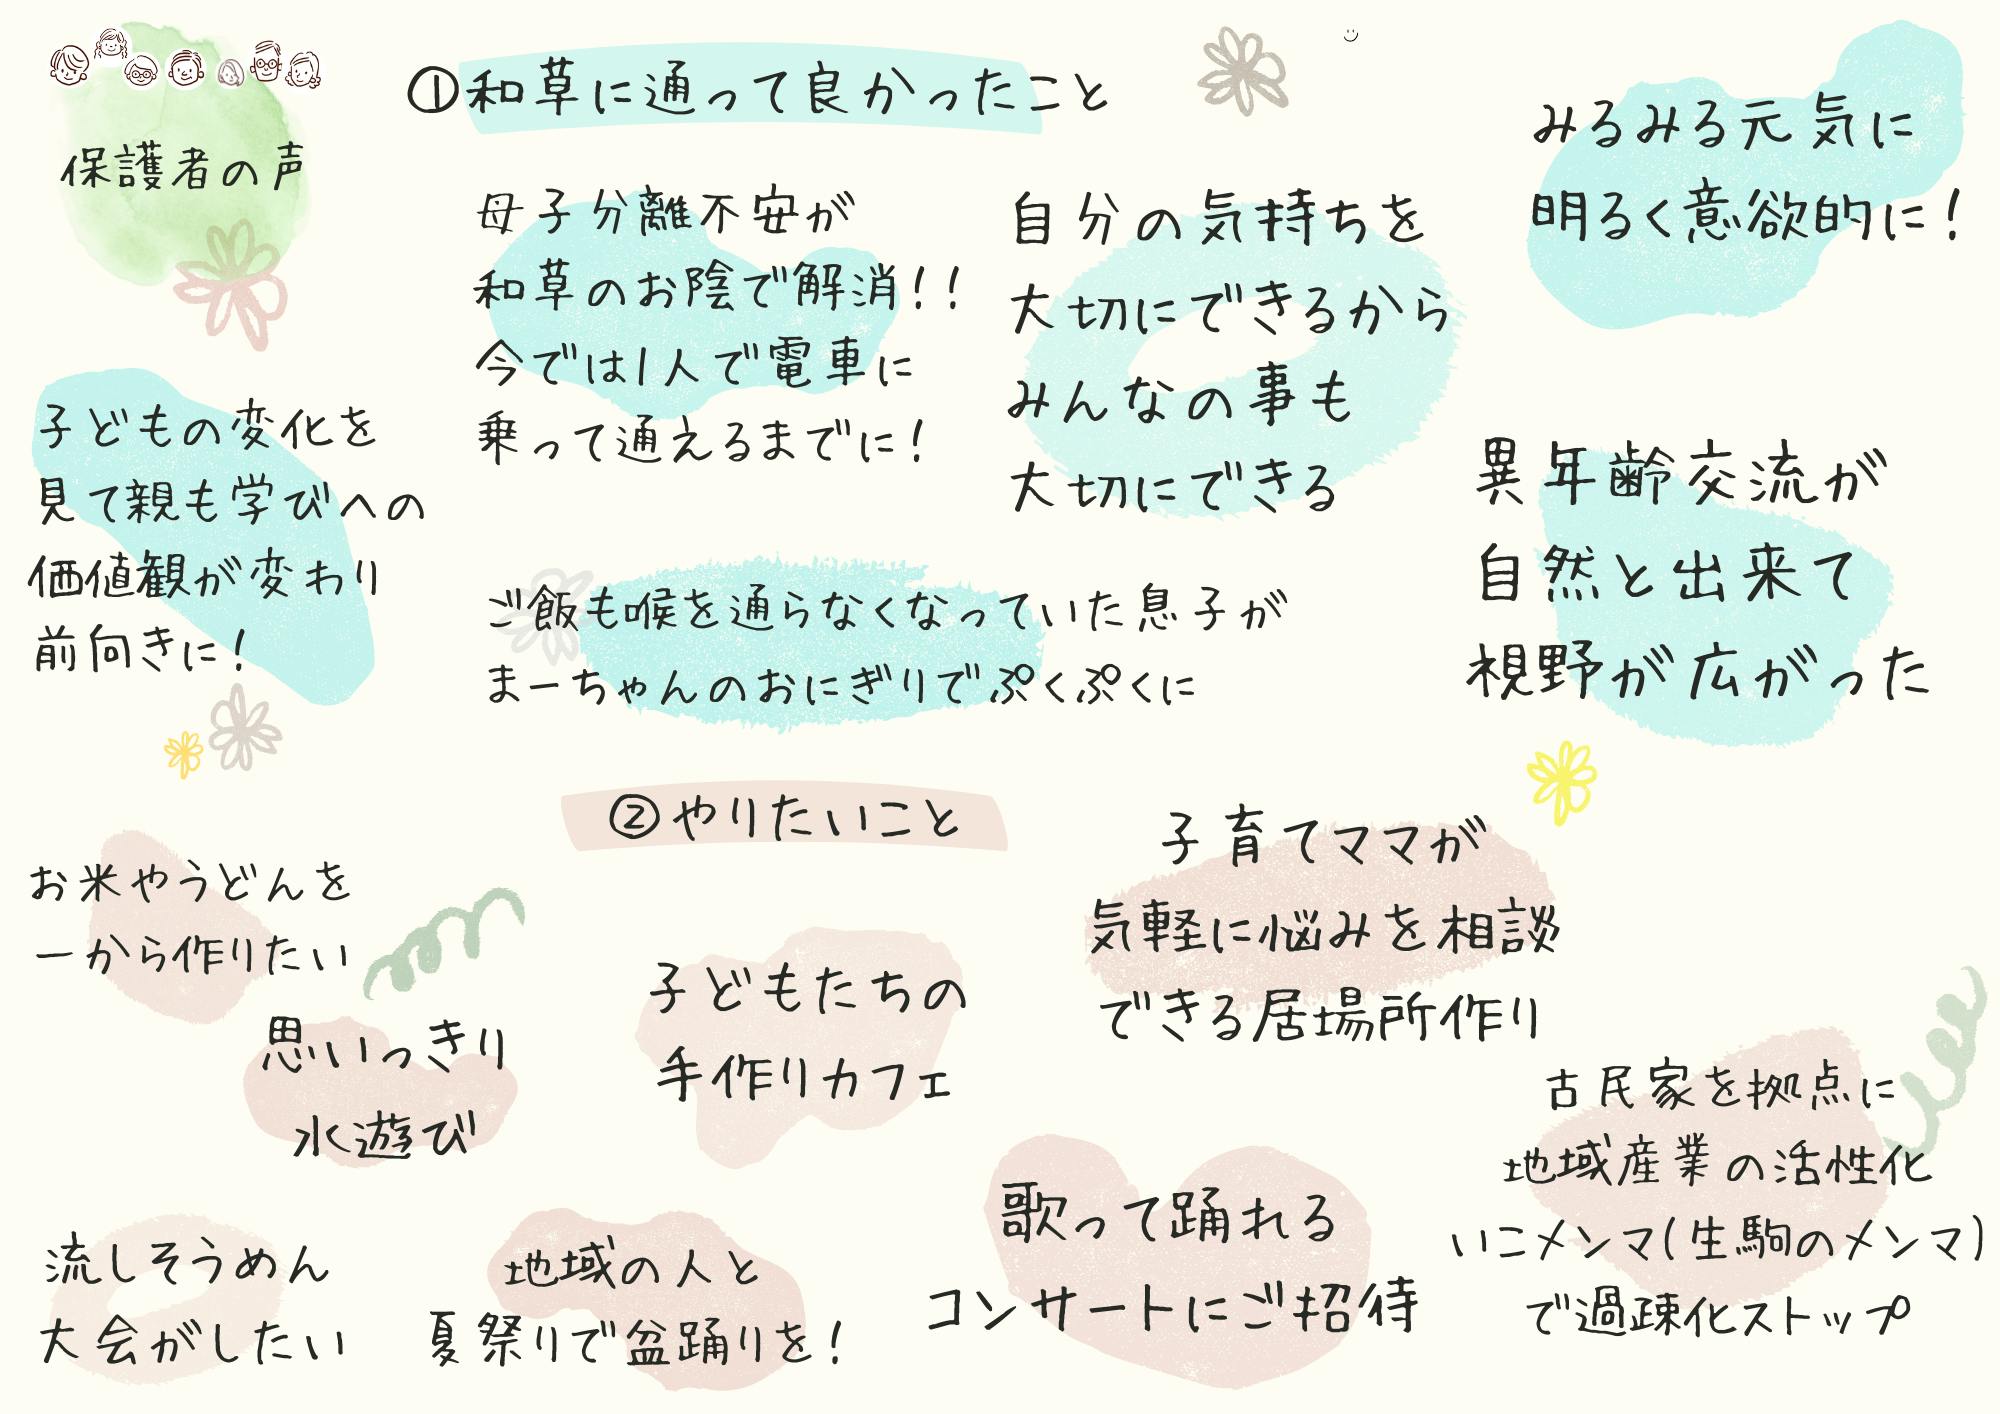 保護者の声
①和草に通って良かったこと
みるみる元気に
明るく意欲的に！
母子分離不安が
和草のお陰で解消！！
今では1人で電車に
乗って通えるまでに！
自分の気持ちを
大切にできるから
みんなの事も
大切にできる
子どもの変化を
見て親も学びへの
価値観が変わり
前向きに！
異年齢交流が
自然と出来て
視野が広がった
ご飯も喉を通らなくなっていた息子が
まーちゃんのおにぎりでぷくぷくに
②やりたいこと
お米やうどんを
一から作りたい
子育てママが
気軽に悩みを相談
できる居場所作り
子どもたちの
手作りカフェ
思いっきり
水遊び
古民家を拠点に
地域産業の活性化
いこメンマ(生駒のメンマ)
で過疎化ストップ
歌って踊れる
コンサートにご招待
流しそうめん
大会がしたい
地域の人と
夏祭りで盆踊りを！